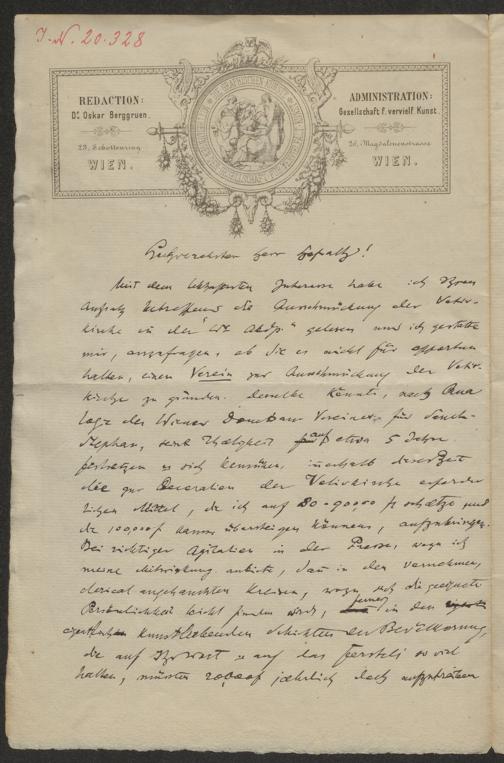 I. N. 20.328
REDACTION:
Dr. Oskar Berggruen.
23, Schottenring
WIEN.
ADMINISTRATION:
Gesellschaft f. vervielf. Kunst
26, Magdalenenstrasse
WIEN.
Hochverehrter Herr !
Mit dem lebhaftesten Interesse habe ich Ihren
Aufsatz betreffend die Ausschmückung der Votiv-
kirche in der gelesen und ich gestatte
mir, anzufragen, ob Sie es nicht für opportun
halten, einen Verein zur Ausschmückung der Votiv-
kirche zu gründen. Derselbe könnte, nach Ana
logie des Wiener Dombau Vereines für Sanct-
Stephan, seine Thätigkeit auf etwa 5 Jahre
festsetzen u sich bemühen, innerhalb dieser Zeit
die zur Decoration der Votivkirche erforder
lichen Mittel, die ich auf 80-90,000 fl schätze und
die 100,000 f kaum übersteigen können, aufzubringen.
Bei richtiger Agitation in der Presse, wozu ich
meine Mitwirkung anbiete, dann in den vornehmen,
clerical angehauchten Kreisen, wozu sich die geeignete
Persönlichkeit leicht finden wird, ferner in den
eigentlichen kunstliebenden Schichten der Bevölkerung,
die auf Ihr Wort u auf das Ferstels so viel
halten, müssten 20,000 f jährlich doch aufzutreiben